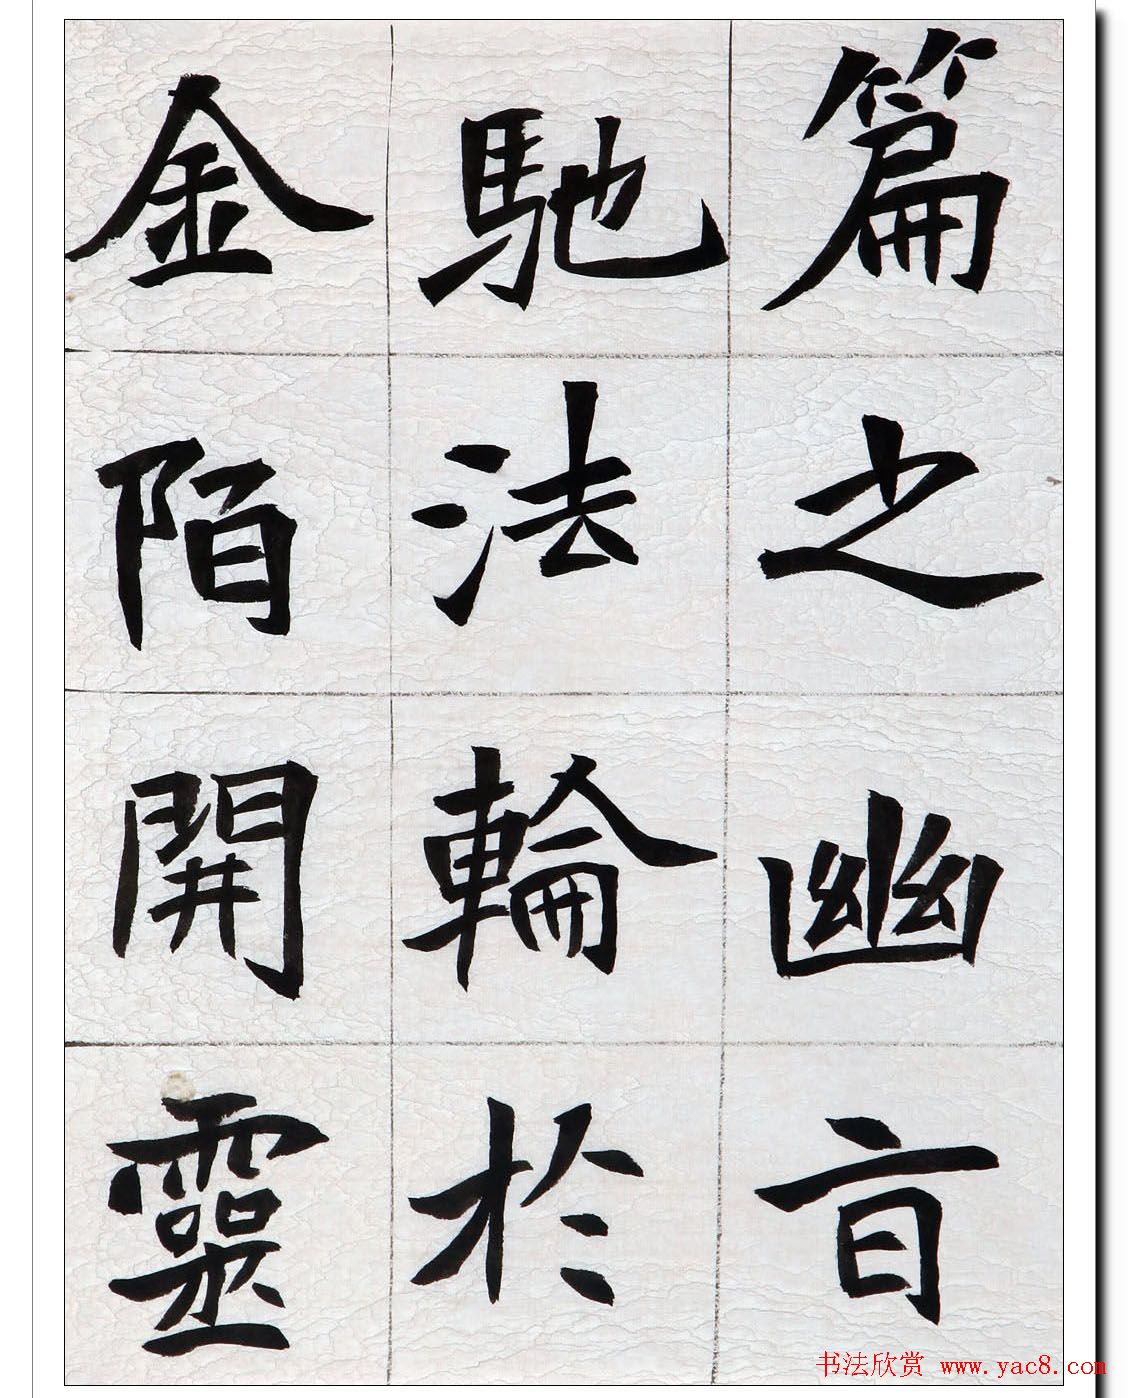 篇之幽㫖
馳法輪於
金陌開靈
书法欣赏 www.yac8.com